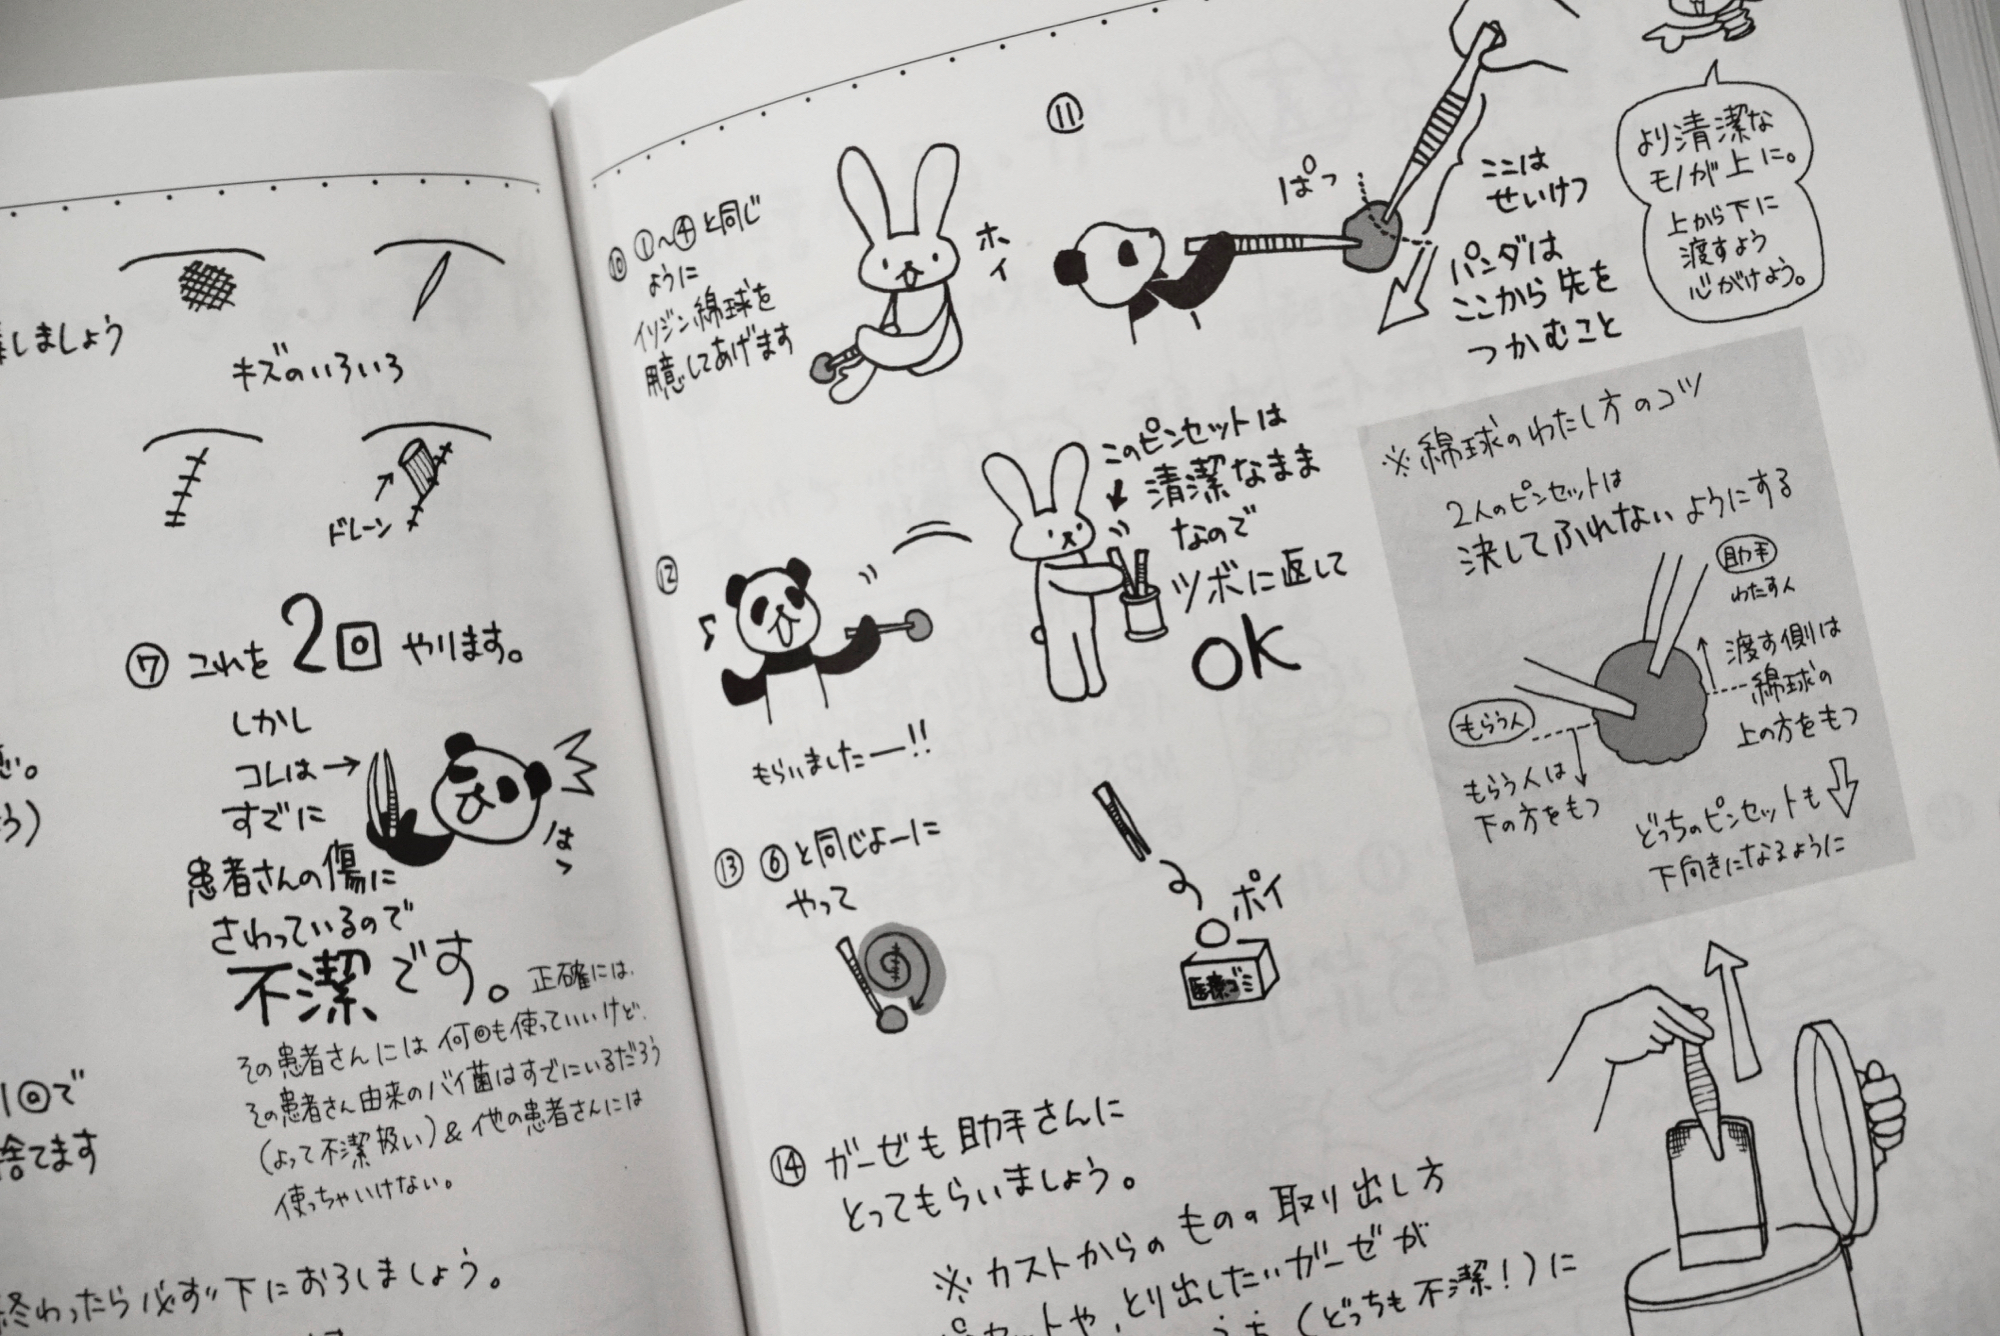 しましょう
キズのいろいろ
ドレーン
⑦ これを2回やります。
しかし
コレは→
すでに
患者さんの傷に
さわっているので
不潔です。
はっ
正確には、
その患者さんには何回も使っていいけど、
その患者さん由来のバイ菌はすでにいるだろう
(よって不潔扱い)&他の患者さんには
使っちゃいけない。
1回で
捨てます
終わったら必ず下におろしましょう。
⑩ ①〜④と同じ
ように
イソジン綿球を
用意してあげます
ホイ
⑪
ぱっ
ここは
せいけつ
パンダは
ここから先を
つかむこと
より清潔な
モノが上に。
上から下に
渡すよう
心がけよう。
⑫
もらいましたー!!
このピンセットは
清潔なまま
なので
ツボに返して
OK
※綿球のわたし方のコツ
2人のピンセットは
決してふれないようにする
助手
わたす人
渡す側は
綿球の
上の方をもつ
もらう人
もらう人は
下の方をもつ
どっちのピンセットも
下向きになるように
⑬ ⑥と同じよーに
やって
ポイ
医療ゴミ
⑭ ガーゼも助手さんに
とってもらいましょう。
※カストからのものの取り出し方
ピンセットや、とり出したいガーゼが
(どっちも不潔!)に